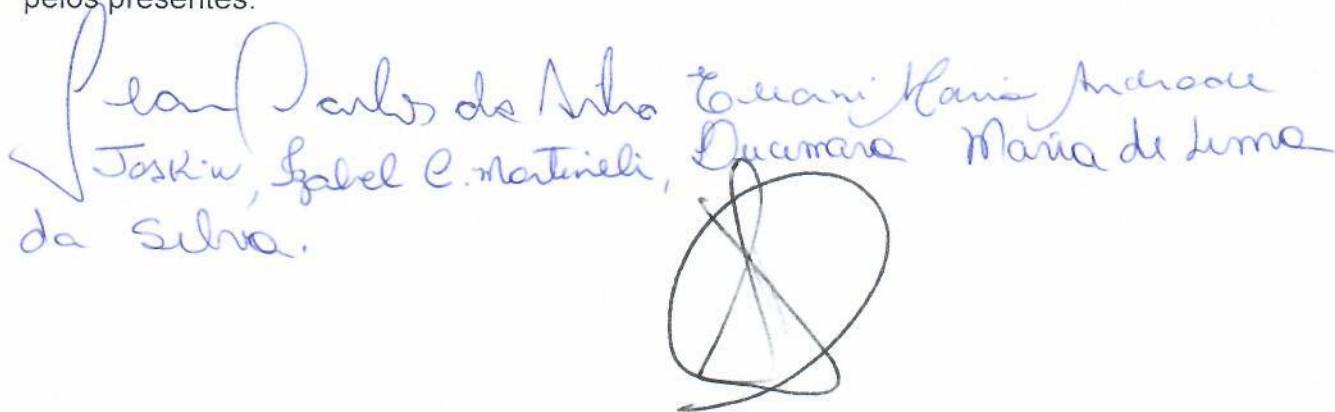 pelos presentes.
Jean Carlos da Silva Maria Andrade
Joskiw, Izabel C. Martineli, Maria de Lima
da Silva.